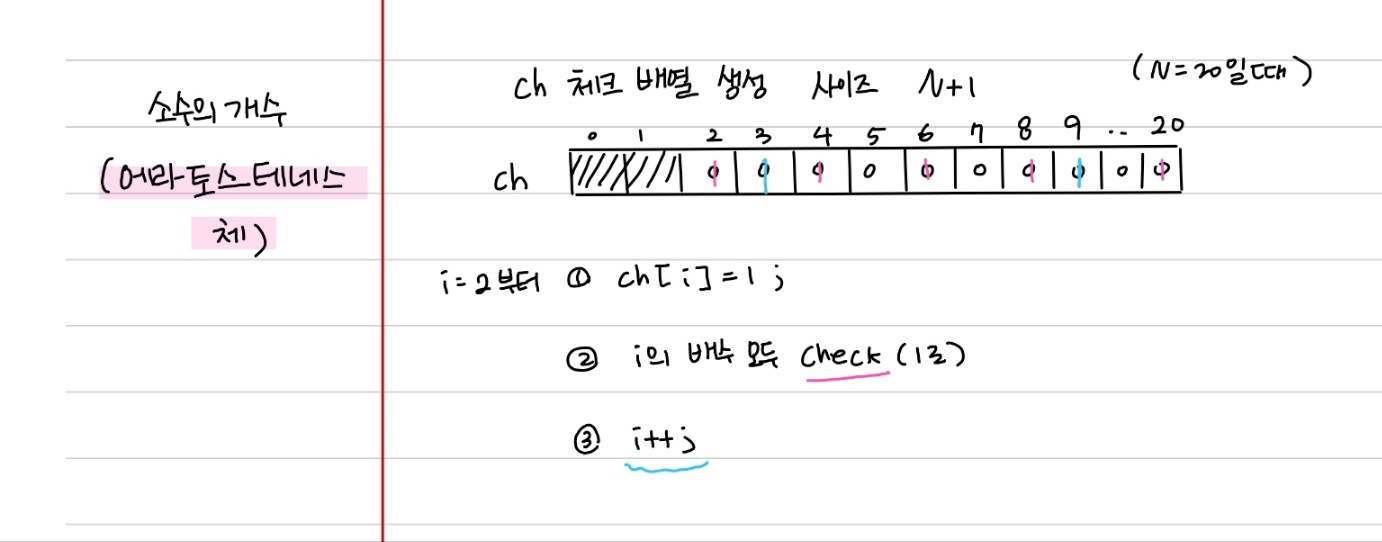 소수의 개수
(에라토스테네스
체)
ch 체크 배열 생성 사이즈 N+1 (N=20일때)
0 1 2 3 4 5 6 7 8 9 .. 20
ch 0 0 0 0 0 0 0 0 0 0
i=2부터 ① ch[i]=1;
② i의 배수 모두 check (1로)
③ i++;